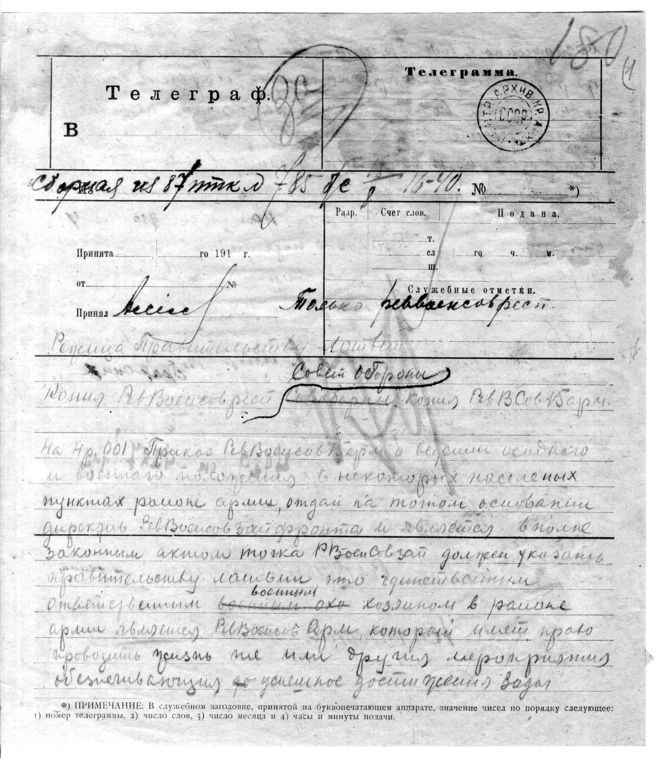 180
Телеграф.
В
Телеграмма.
СССР
Сборная из 87 пткл 785 8/с 16-40. № *)
Разр. Счет слов. Подана.
т.
сл го ч. м.
ш.
Принята го 191 г.
от №
Принял
Служебные отметки.
Только реввоенсоврест.
Режица Правительству Латвии
Совет обороны
Копия РевВоенсоврест копия РевВСов Барм.
На Нр. 001 Приказ РевВоенсов Барм о ведении осадного
и военного положения в некоторых населеных
пунктах районе армии, отдан на точном основании
директив РевВоенсовзапфронта и является вполне
законным актом точка РВоенСовзап должен указать
правительству латвии что единственным
военным
ответственным хозяином в районе
армии является РевВоенсов Арм, который имеет право
проводить жизнь те или другия мероприятия
обезпечивающия успешное достижения задач
*) ПРИМЕЧАНИЕ: В служебном заголовке, принятой на буквопечатающем аппарате, значение чисел по порядку следующее:
1) номер телеграммы, 2) число слов, 3) число месяца и 4) часы и минуты подачи.